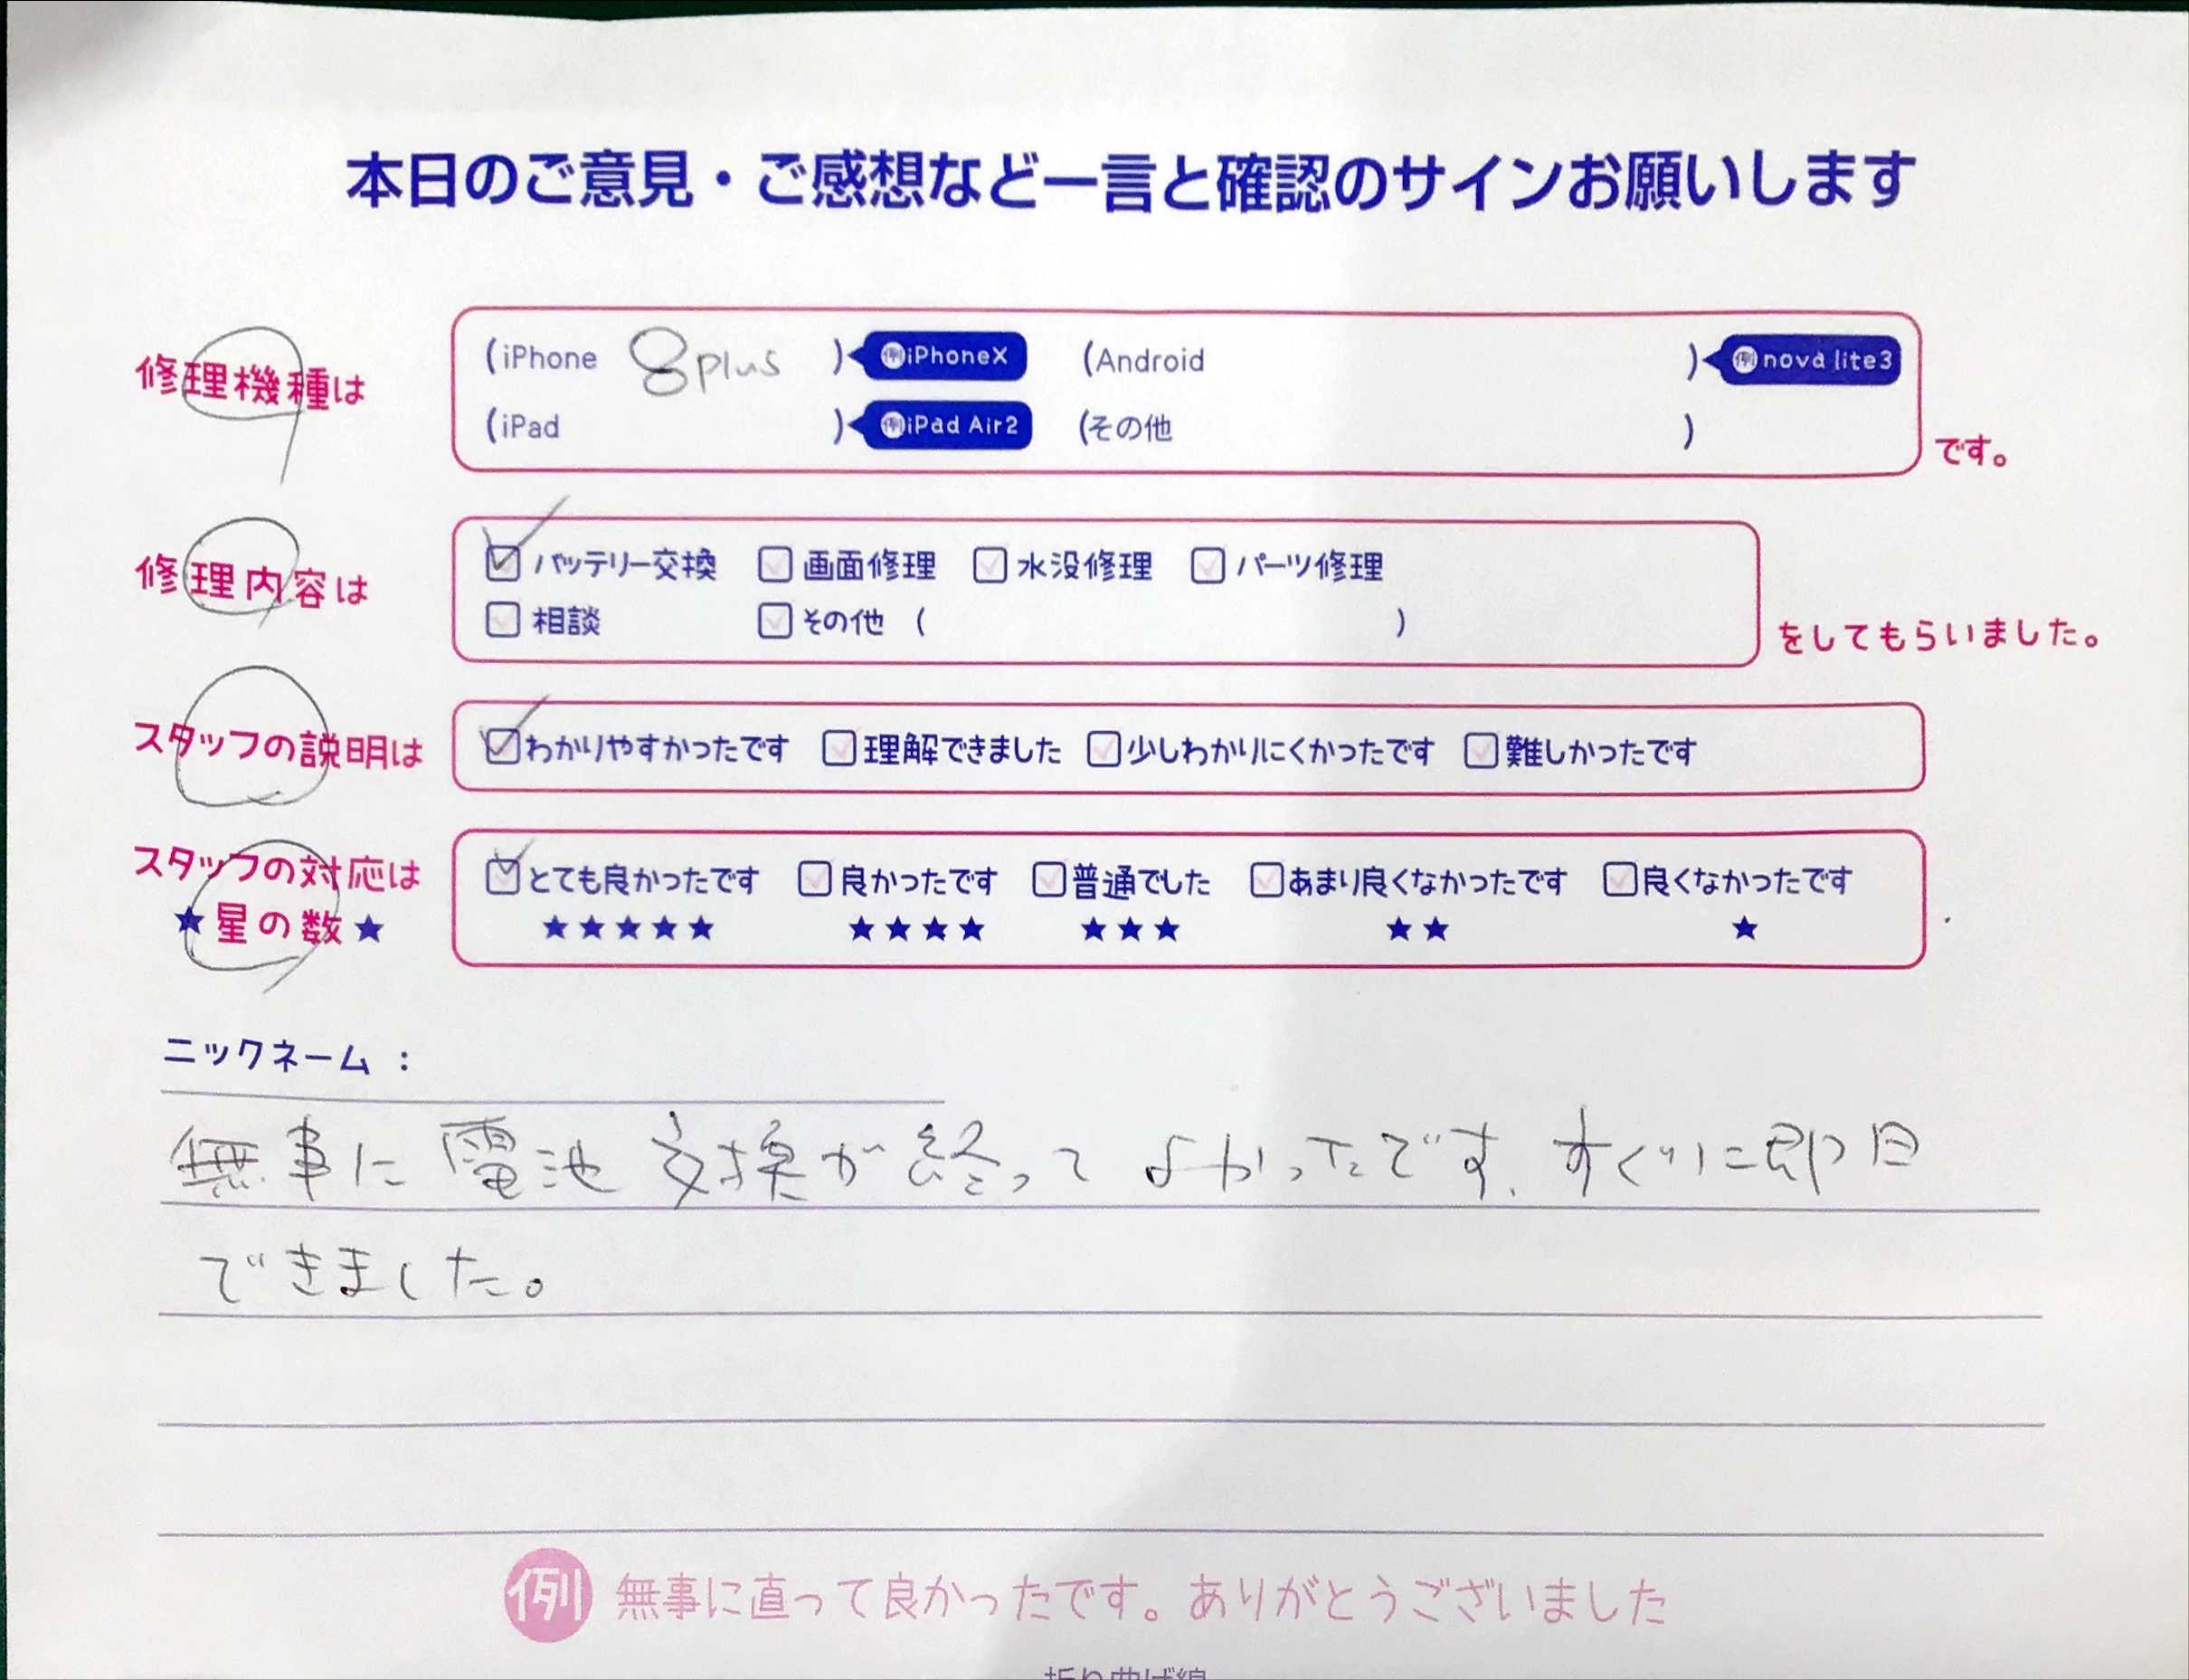 本日のご意見・ご感想など一言と確認のサインお願いします
修理機種は
(iPhone 8plus ) 例iPhoneX (Android ) 例nova lite3
(iPad ) 例iPad Air2 (その他 )
です。
修理内容は
バッテリー交換 画面修理 水没修理 パーツ修理
相談 その他 ( )
をしてもらいました。
スタッフの説明は
わかりやすかったです 理解できました 少しわかりにくかったです 難しかったです
スタッフの対応は
★星の数★
とても良かったです 良かったです 普通でした あまり良くなかったです 良くなかったです
★★★★★ ★★★★ ★★★ ★★ ★
ニックネーム :
無事に電池交換が終ってよかったです、すぐに即日
できました。
例 無事に直って良かったです。ありがとうございました
折り曲げ線